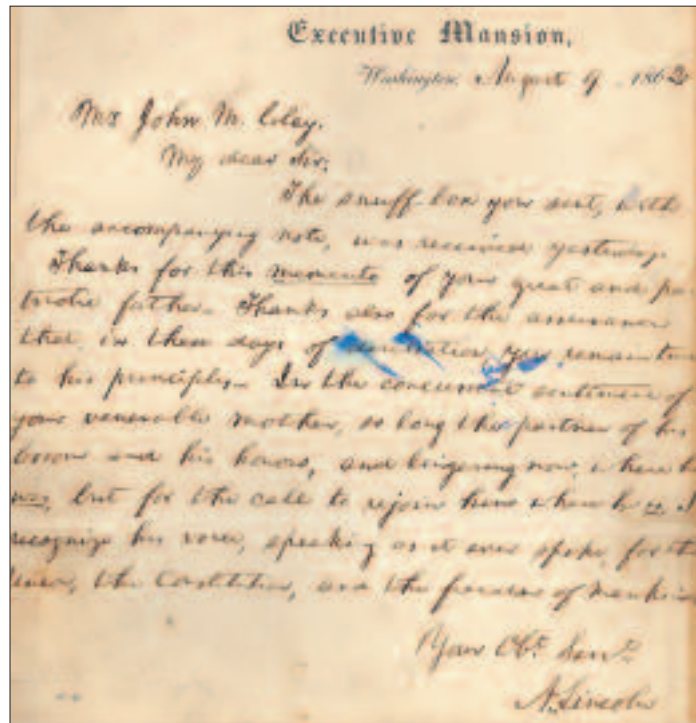 Executive Mansion,
Washington, August 9, 1862
Mr John M. Clay.
My dear Sir:
The snuff-box you sent, with
the accompanying note, was received yesterday.
Thanks for this memento of your great and pa-
triotic father. Thanks also for the assurance
that, in these days of you remain true
to his principles. In the concurrent sentiment of
your venerable mother, so long the partner of his
bosom and his honors, and lingering now, where he
was, but for the call to rejoin him where he is, I
recognize his voice, speaking as it ever spoke, for the
Union, the Constitution, and the freedom of mankind
Your Obt. Servt.
A. Lincoln